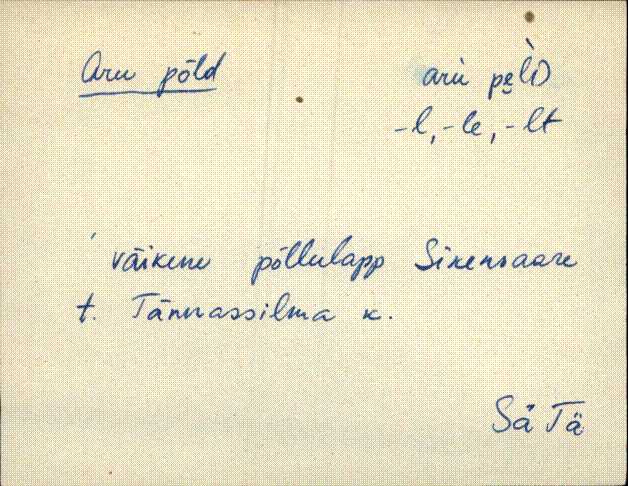 Aru põld
arù pe̮l̀D
-l, -le, -lt
väikene põllulapp Sikensaare
t. Tännassilma k.
Sä Tä